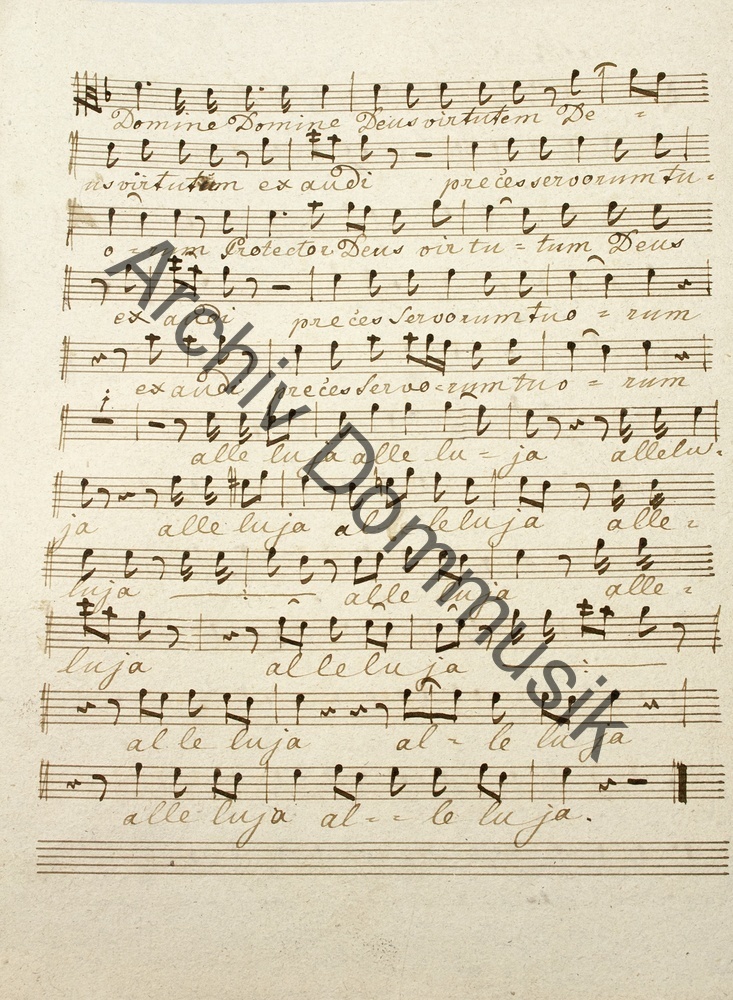 Domine Domine Deus virtutem De -
us virtutum exaudi preces servorum tu -
o - rum Protector Deus vir tu - tum Deus
exaudi preces servorum tuo - rum
exaudi preces servo - rum tuo - rum
alle luja alle lu - ja allelu -
ja alle luja al leluja alle -
luja alle luja alle -
luja alleluja
al le luja al - le luja
alle luja al - - le luja.
Archiv Dommusik